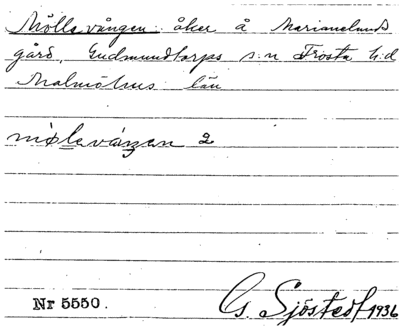 Möllevången åker å Marianelunds
gård, Gudmundtorps s:n Frosta h:d
Malmöhus län
mølevánen 2
Nr 5550.
G. Sjöstedt 1936